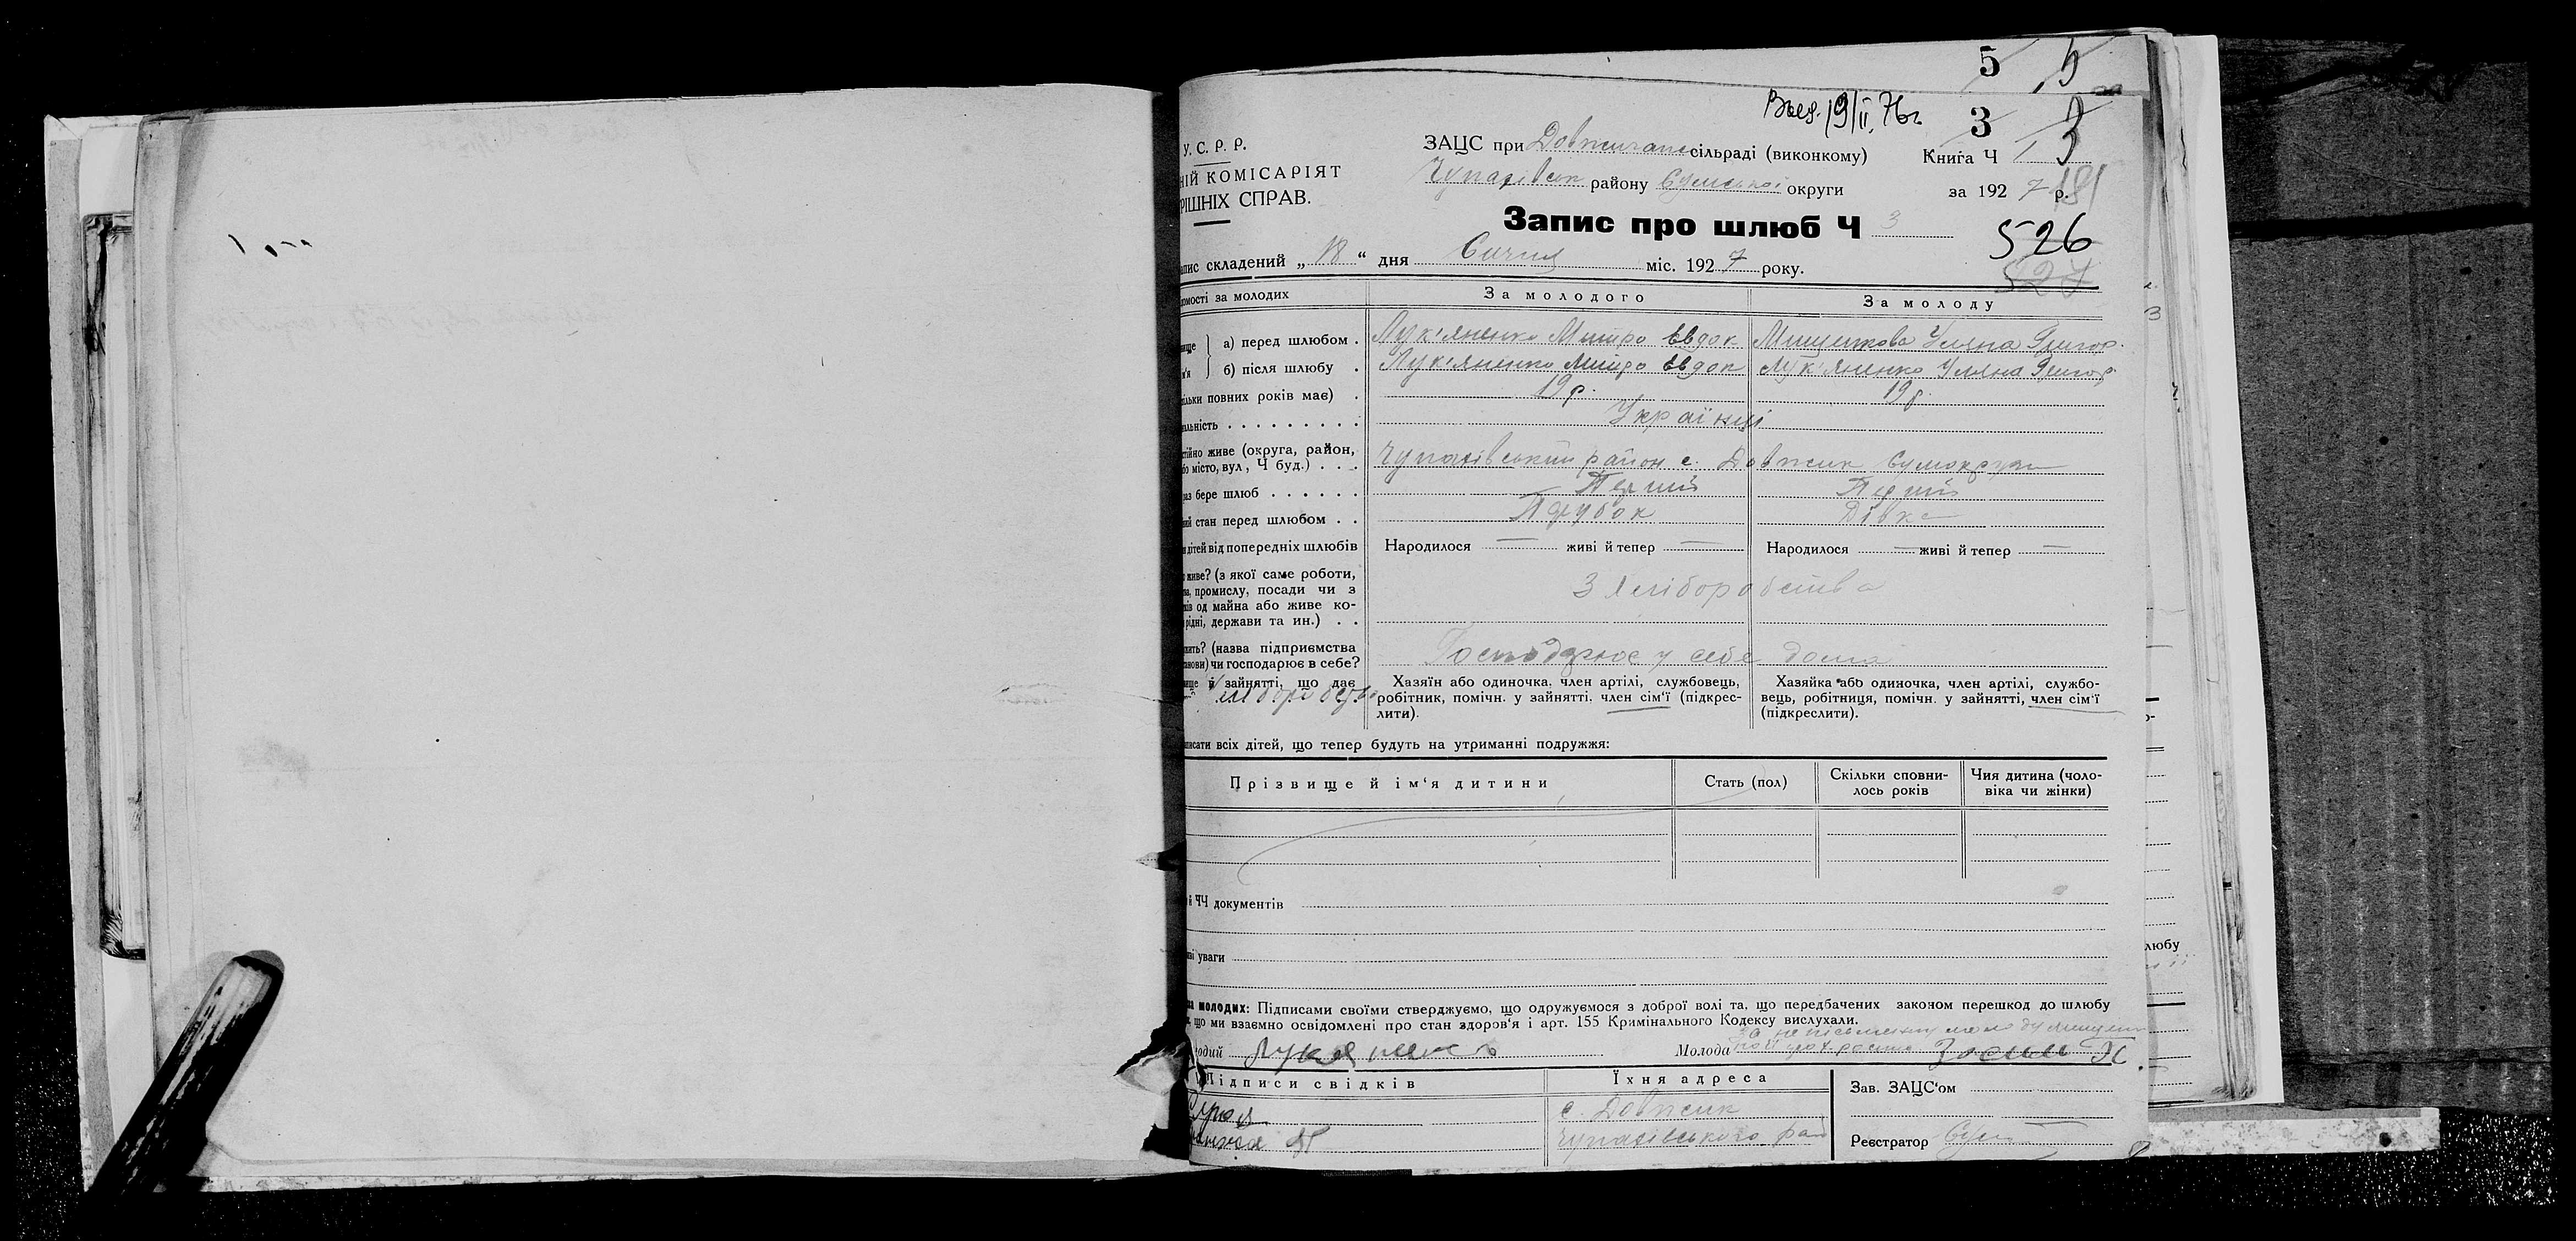 5 5
Выд. 19/II. 76г. 3 3
У. С. Р. Р.
НІЙ КОМІСАРІЯТ
РІШНІХ СПРАВ.
ЗАЦС при сільраді (виконкому) Книга Ч 1
Чупахівськ району Сумської округи за 1927 р.
Запис про шлюб Ч 3
526
527
апис складений „ 18 “ дня Січня міс. 1927 року.
омості за молодих За молодого За молоду
а) перед шлюбом . Лук'яненко Митро Євдок Григор.
б) після шлюбу . Лук'яненко Митро Євдок Лук'яненко Уляна Григор.
ільки повних років має) . 19 р. 19 р.
альність . . . . . . . . . Українці
стійно живе (округа, район,
бо місто, вул, Ч буд.) . . . Чупахівський район с. Довжик Сумокруги
аз бере шлюб . . . . . . Перший Перший
ний стан перед шлюбом . . Парубок Дівка
дітей від попередніх шлюбів Народилося — живі й тепер — Народилося — живі й тепер —
живе? (з якої саме роботи,
ва, промислу, посади чи з
ків од майна або живе ко-
рідні, держави та ин.) . . З Хліборобства
жить? (назва підприємства
танови) чи господарює в себе? Господарює у себе дома
вище й зайнятті, що дає Хліборобство
Хазяїн або одиночка, член артілі, службовець,
робітник, помічн. у зайнятті, член сім'ї (підкрес-
лити).
Хазяйка або одиночка, член артілі, службо-
вець, робітниця, помічн. у зайнятті, член сім'ї
(підкреслити).
писати всіх дітей, що тепер будуть на утриманні подружжя:
Прізвище й ім'я дитини Стать (пол) Скільки сповни-
лось років Чия дитина (чоло-
віка чи жінки)
й ЧЧ документів
ві уваги
молодих: Підписами своїми стверджуємо, що одружуємося з доброї волі та, що передбачених законом перешкод до шлюбу
, що ми взаємно освідомлені про стан здоров'я і арт. 155 Кримінального Кодексу вислухали.
одий Лукяненко Молода
Підписи свідків Їхня адреса Зав. ЗАЦС'ом
с. Довжик
Чупахівського рай Реєстратор
любу